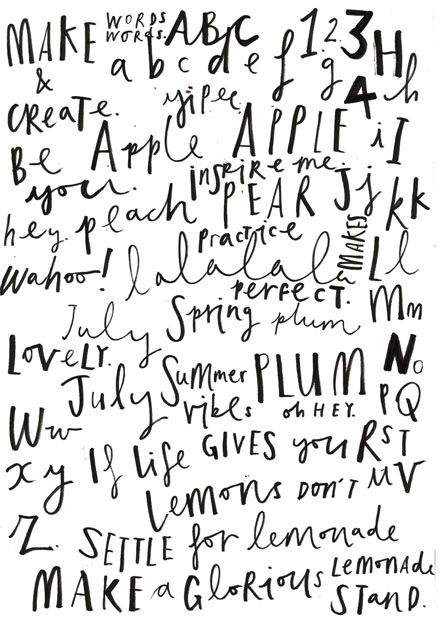 MAKE WORDS ABC 1.2.3 H
WORDS.
& a b c d e f g 4 h
CREATE. yipee
Be Apple APPLE iI
you. inspire me.
hey. peach PEAR Jj kk
practice MAKES
Wahoo! lalalala Ll
PERFECT.
July Spring plum Mm
LOVELY. July Summer PLUM No
vibes oh HEY. PQ
Ww If life GIVES you RST
x y Lemons DON'T UV
Z. SETTLE for lemonade
MAKE a GLORIOUS LEMONADE
STAND.